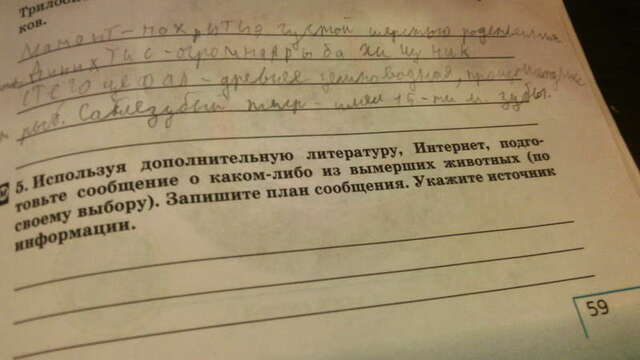 Трилоб
ков.
Мамонт - покрытый густой шерстью
Динихтис - огромная рыба хищник
Стегоцефал - древнее земноводное,
рыб. Саблезубый тигр - имел 15-ти м зубы.
5. Используя дополнительную литературу, Интернет, подго-
товьте сообщение о каком-либо из вымерших животных (по
своему выбору). Запишите план сообщения. Укажите источник
информации.
59